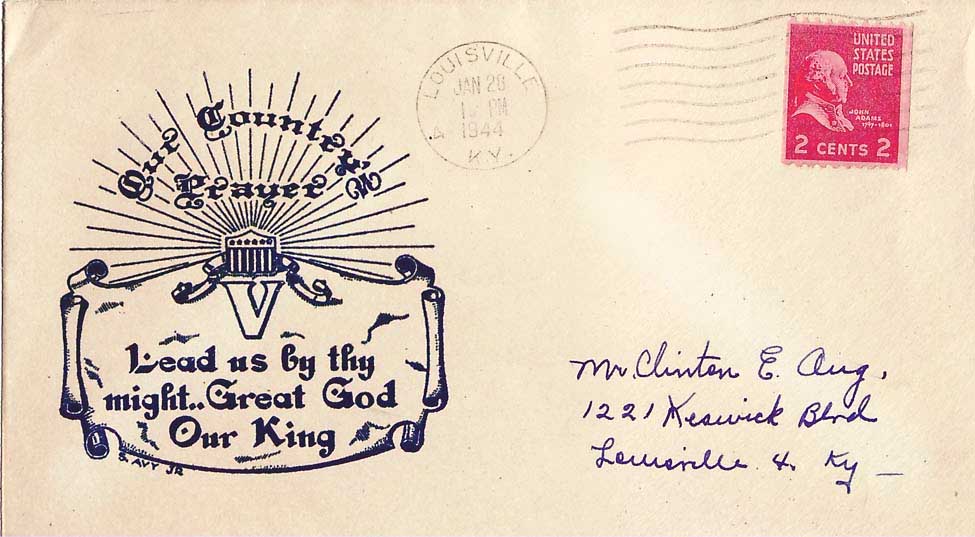 Our Country's
Prayer
V
Lead us by thy
might..Great God
Our King
S. AVY JR
LOUISVILLE
JAN 28
1 PM
1944
KY.
UNITED
STATES
POSTAGE
JOHN
ADAMS
1797-1801
2 CENTS 2
Mr. Clinton E. Aug,
1221 Keswick Blvd
Louisville 4. Ky —